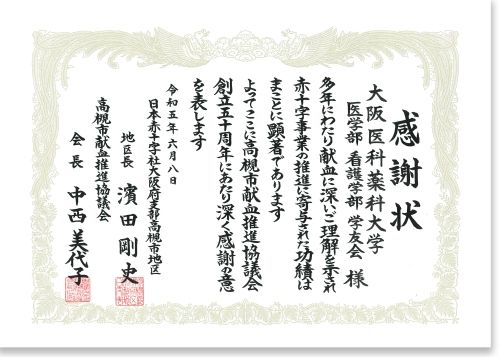 感謝状
大阪医科薬科大学
医学部 看護学部 学友会 様
多年にわたり献血に深いご理解を示され
赤十字事業の推進に寄与された功績は
まことに顕著であります
よってここに高槻市献血推進協議会
創立五十周年にあたり深く感謝の意
を表します
令和五年六月八日
日本赤十字社大阪府支部高槻市地区
地区長 濱田剛史
高槻市献血推進協議会
会長 中西美代子